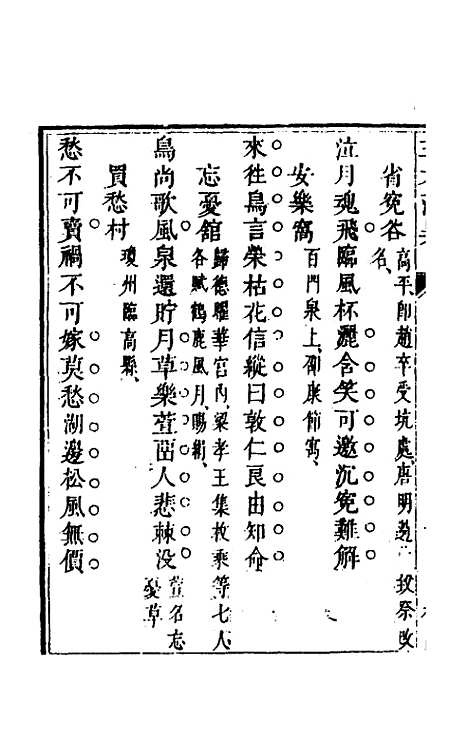 省冤谷高平卽趙卒受坑處唐明 致祭改名
泣月魂飛臨風杯灑含笑可邀沉冤難解
安樂窩百門泉上邵康節寓
來往鳥言榮枯花信縱曰敦仁良由知命
忘憂館歸德曜華宮內梁孝王集枚乘等七人各賦鶴鹿風月賜絹
鳥尚歌風泉還貯月草樂萱茁人悲棘没萱名忘憂草
買愁村瓊州臨高縣
愁不可賣禍不可嫁莫愁湖邊松風無價